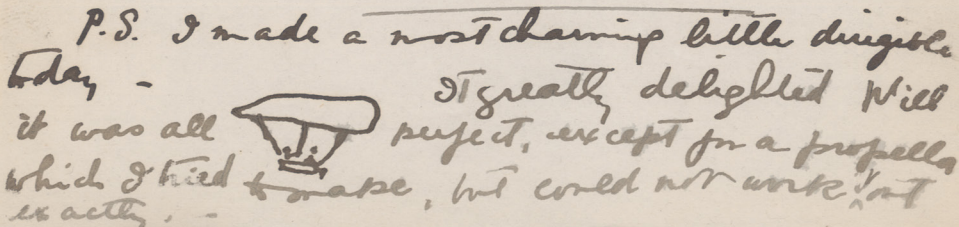 P.S. I made a most charming little dirigible
today -
It greatly delighted Will
it was all perfect, except for a propella
which I tried to make, but could not work it out
exactly. -